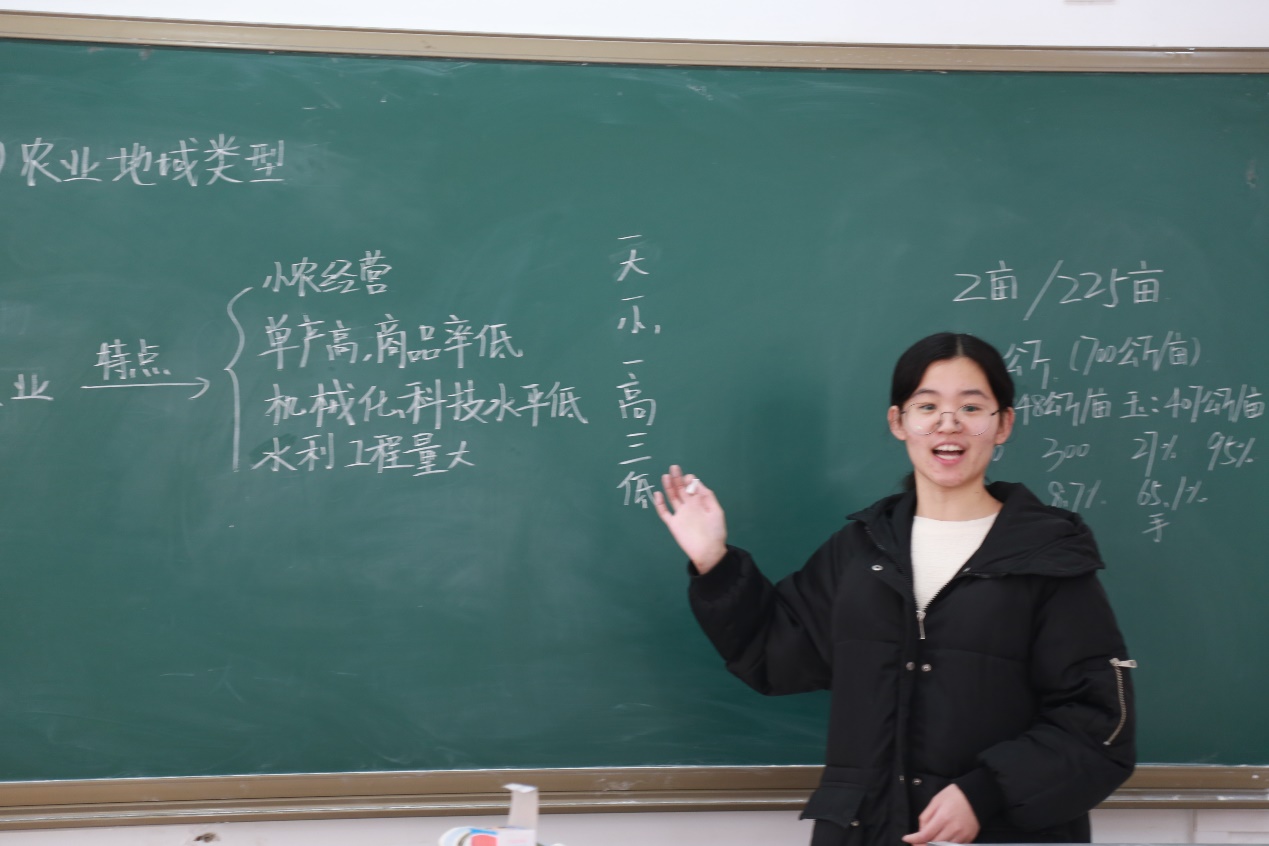 )农业地域类型
业
特点
小农经营
单产高,商品率低
机械化,科技水平低
水利工程量大
一
大
一
小,
一
高
三
低
2亩/225亩
公斤(700公斤/亩)
48公斤/亩 玉:407公斤/亩
300 27% 95%
8.7% 65.1%
手